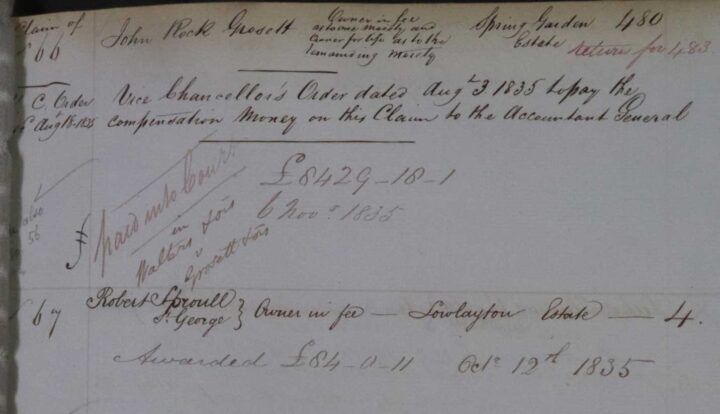 Claim of
66
John Rock Grosett
Owner in fee
as to one moiety and
Owner for life as to the
remainding moiety
Spring Garden
Estate
480
return for 483
C. Order
Augt 18. 1835
Vice Chancellor's Order dated Augt 3. 1835 to pay the
compensation Money on this Claim to the Accountant General
£8429-18-1
6 Novr 1835
paid into Court
in
Walters & ors
v
Grosett & ors
also
56
67
Robert Sproull
St. George } Owner in fee — Lowlayton Estate — 4.
Awarded £84-0-11 Octr 12th 1835